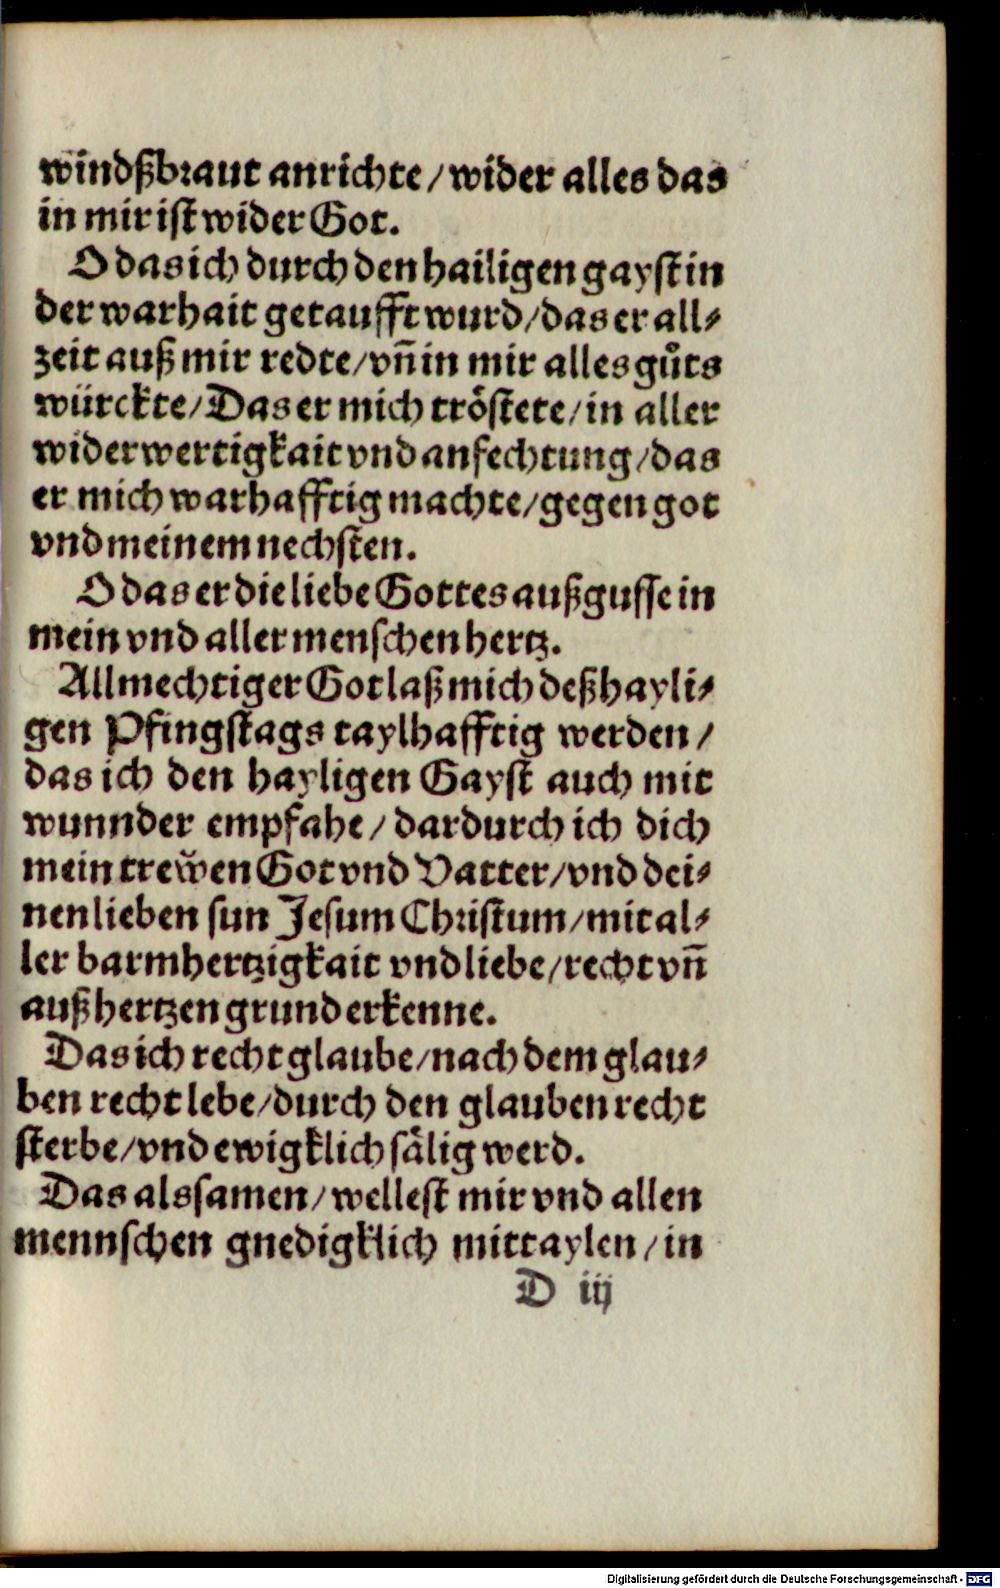 windßbraut anrichte/ wider alles das
in mir ist wider Got.
O das ich durch den hailigen gayst in
der warhait getaufft wurd/ das er all⸗
zeit auß mir redte/ vñ in mir alles gůts
würckte/ Das er mich tröstete/ in aller
widerwertigkait vnd anfechtung/ das
er mich warhafftig machte/ gegen got
vnd meinem nechsten.
O das er die liebe Gottes außgusse in
mein vnd aller menschen hertz.
Allmechtiger Got laß mich deß hayli⸗
gen Pfingstags taylhafftig werden/
das ich den hayligen Gayst auch mit
wunnder empfahe/ dardurch ich dich
mein trewen Got vnd Vatter/ vnd dei⸗
nen lieben sun Jesum Christum/ mit al⸗
ler barmhertzigkait vnd liebe/ recht vñ
auß hertzen grund erkenne.
Das ich recht glaube/ nach dem glau⸗
ben recht lebe/ durch den glauben recht
sterbe/ vnd ewigklich sälig werd.
Das als samen/ wellest mir vnd allen
mennschen gnedigklich mittaylen/ in
D iij
Digitalisierung gefördert durch die Deutsche Forschungsgemeinschaft - DFG